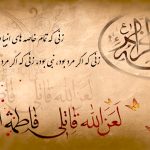 زنی که تمام خاصه های انبیا
زنی که اگر مرد بود، نبی بود، زنی که اگر مرد
لعن الله قاتلی فاطمة